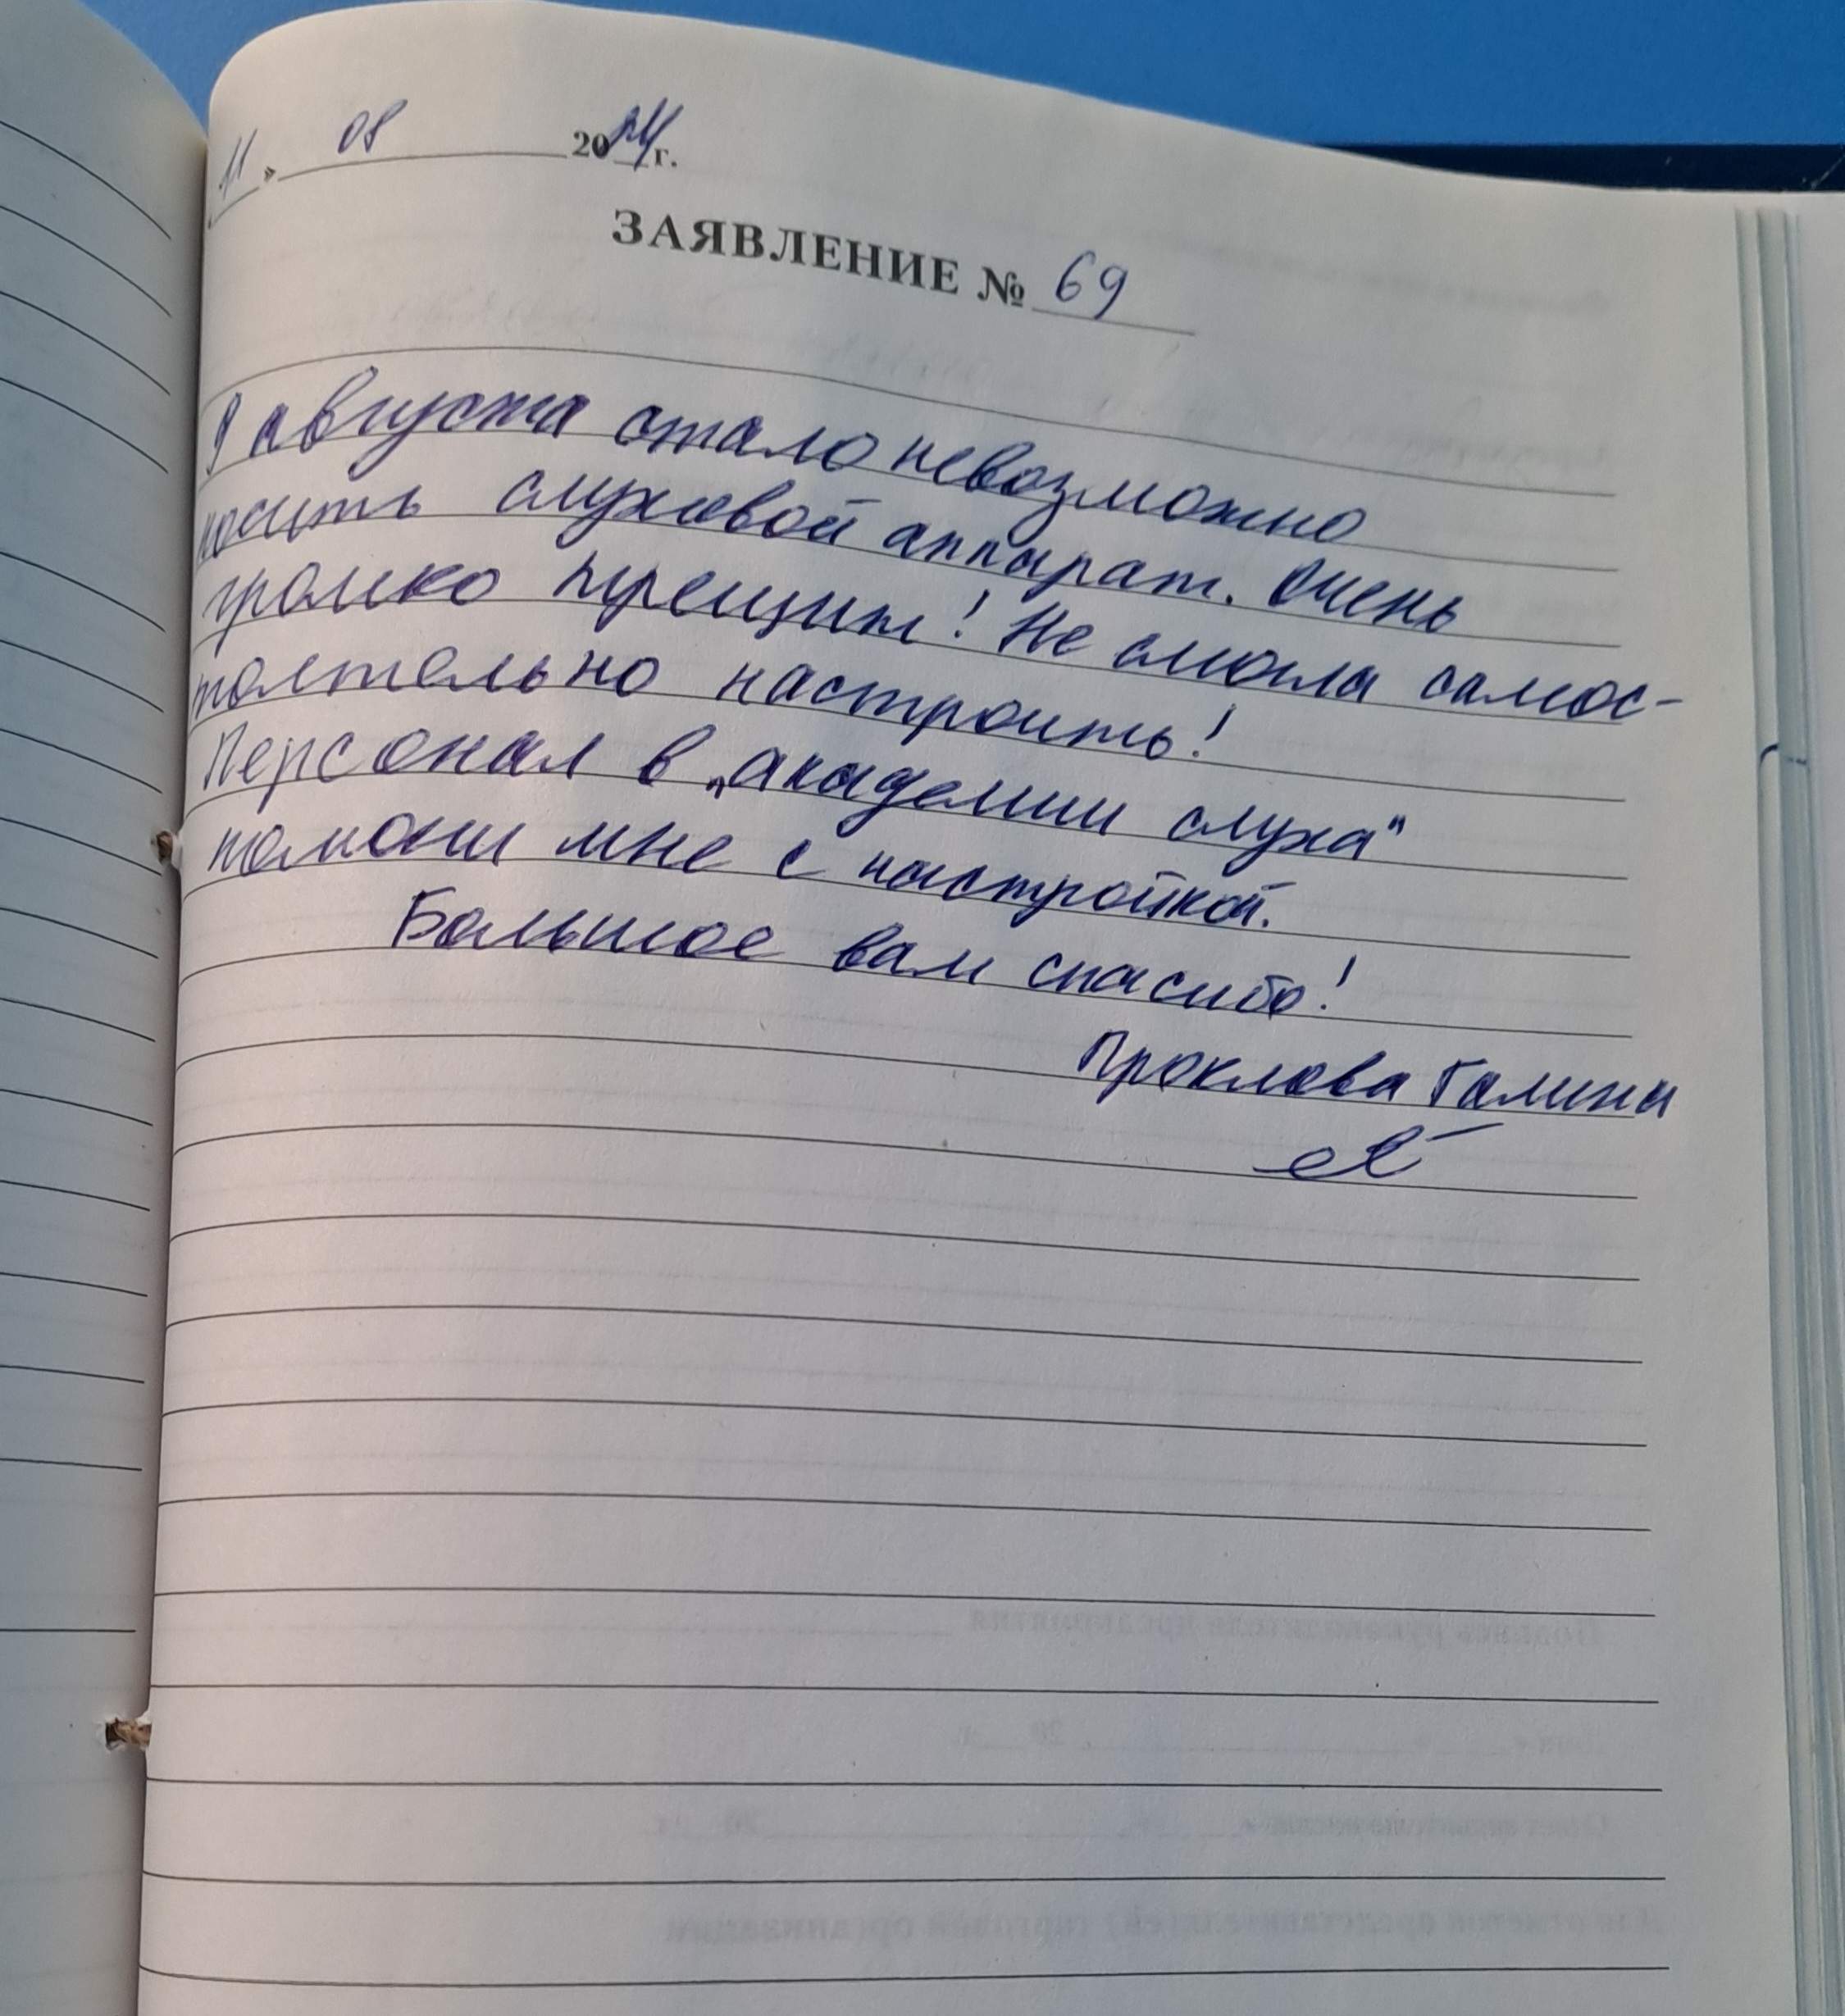 11 » 08 2024 г.
ЗАЯВЛЕНИЕ № 69
9 августа стало невозможно
носить слуховой аппарат. Очень
громко трещит! Не смогла самос-
тоятельно настроить!
Персонал в „академии слуха"
помогли мне с настройкой.
Большое вам спасибо!
Проклова Галина